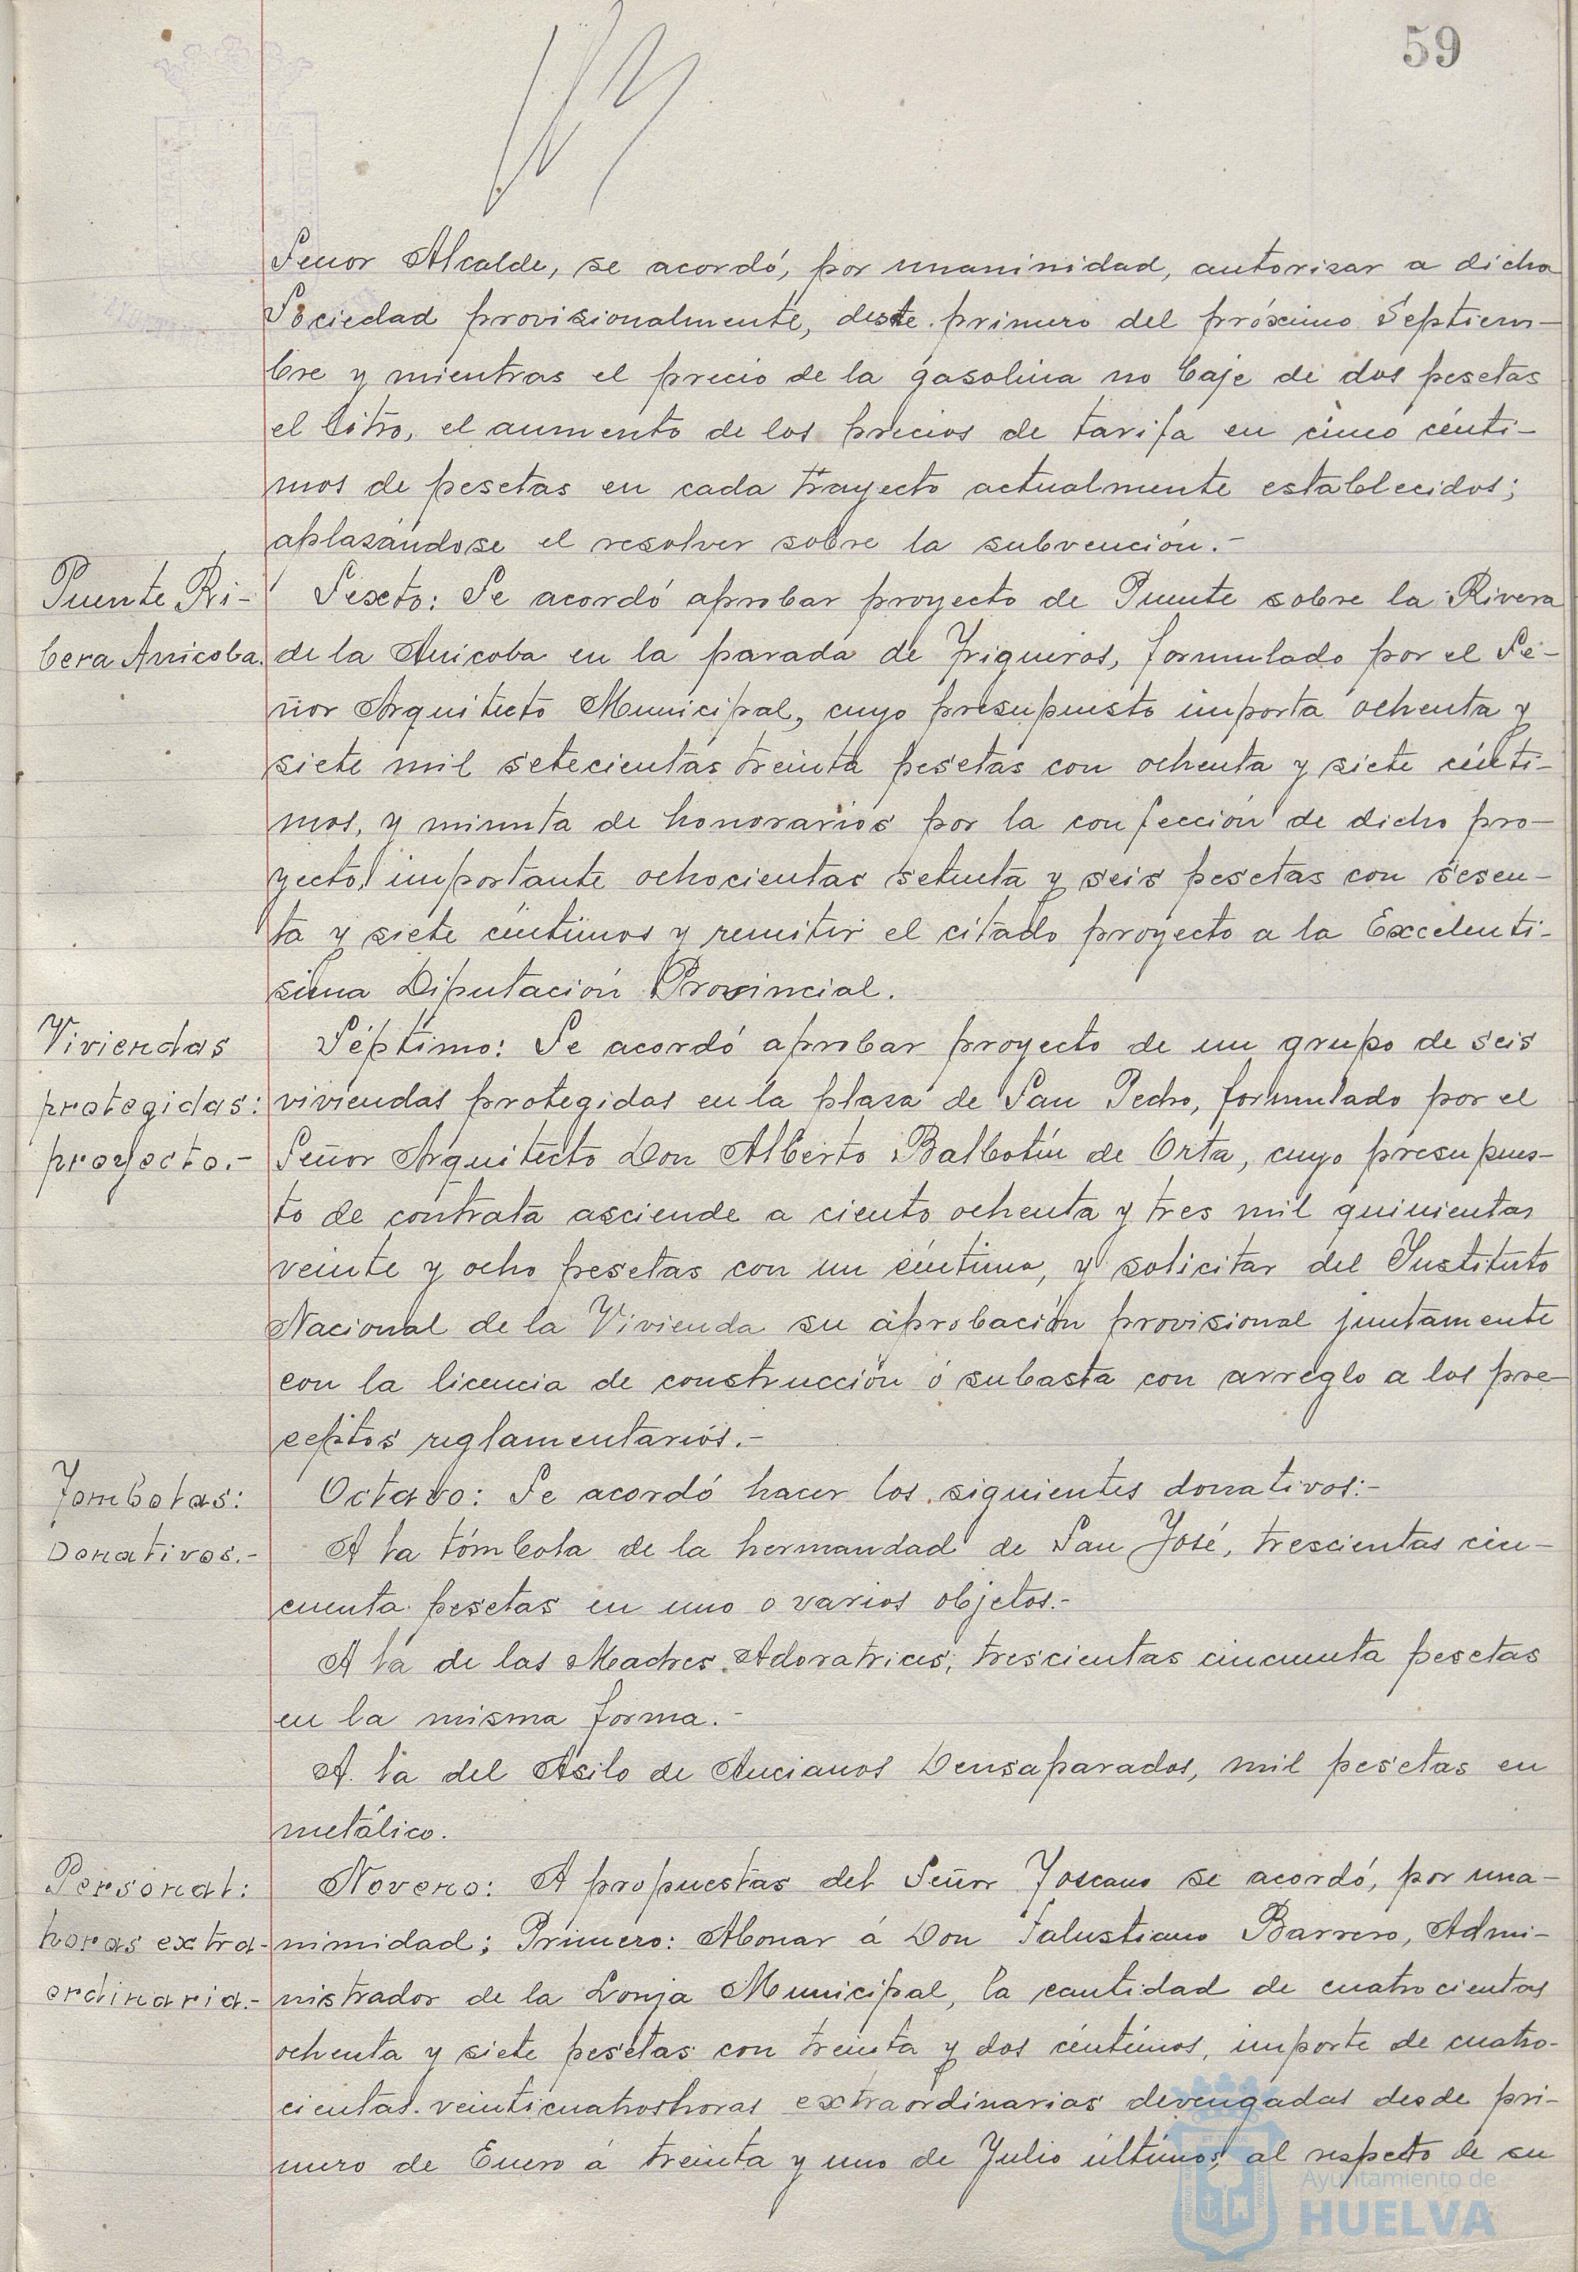 59
Señor Alcalde, se acordó, por unaninidad, autorizar a dicha
Sociedad provisionalmente, desde primero del próximo Septiem-
bre y mientras el precio de la gasolina no baje de dos pesetas
el litro, el aumento de los precios de tarifa en cinco cénti-
mos de pesetas en cada trayecto actualmente establecidos;
aplazándose el resolver sobre la subvención.-
Puente Ri-
bera Anicoba.
Sexto: Se acordó aprobar proyecto de Puente sobre la Rivera
de la Anicoba en la parada de Trigueros, formulado por el Se-
ñor Arquitecto Municipal, cuyo presupuesto importa ochenta y
siete mil setecientas treinta pesetas con ochenta y siete cénti-
mos, y minuta de honorarios por la confección de dicho pro-
yecto, importante ochocientas setenta y seis pesetas con sesen-
ta y siete céntimos y remitir el citado proyecto a la Excelenti-
sima Diputación Provincial.
Viviendas
protegidas:
proyecto.-
Séptimo: Se acordó aprobar proyecto de un grupo de seis
viviendas protegidas en la plaza de San Pedro, formulado por el
Señor Arquitecto Don Alberto Balbotín de Orta, cuyo presupues-
to de contrata asciende a ciento ochenta y tres mil quinientas
veinte y ocho pesetas con un céntimo, y solicitar del Instituto
Nacional de la Vivienda su aprobación provisional juntamente
con la licencia de construcción ó subasta con arreglo a los pre-
ceptos reglamentarios.-
Tombolas:
Donativos.-
Octavo: Se acordó hacer los siguientes donativos:-
A la tómbola de la hermandad de San José, trescientas cin-
cuenta pesetas en uno o varios objetos.-
A la de las Madres Adoratrices, trescientas cincuenta pesetas
en la misma forma.-
A la del Asilo de Ancianos Densaparados, mil pesetas en
metálico.
Personal:
horas extra-
ordinaria.-
Noveno: A propuestas del Señor Toscano se acordó, por una-
nimidad; Primero: Abonar á Don Salustiano Barrero, Admi-
nistrador de la Lonja Municipal, la cantidad de cuatrocientas
ochenta y siete pesetas con treinta y dos céntimos, importe de cuatro-
cientas veinticuatroshoras extraordinarias devengadas desde pri-
mero de Enero á treinta y uno de Julio últimos, al respecto de su
Ayuntamiento de
HUELVA